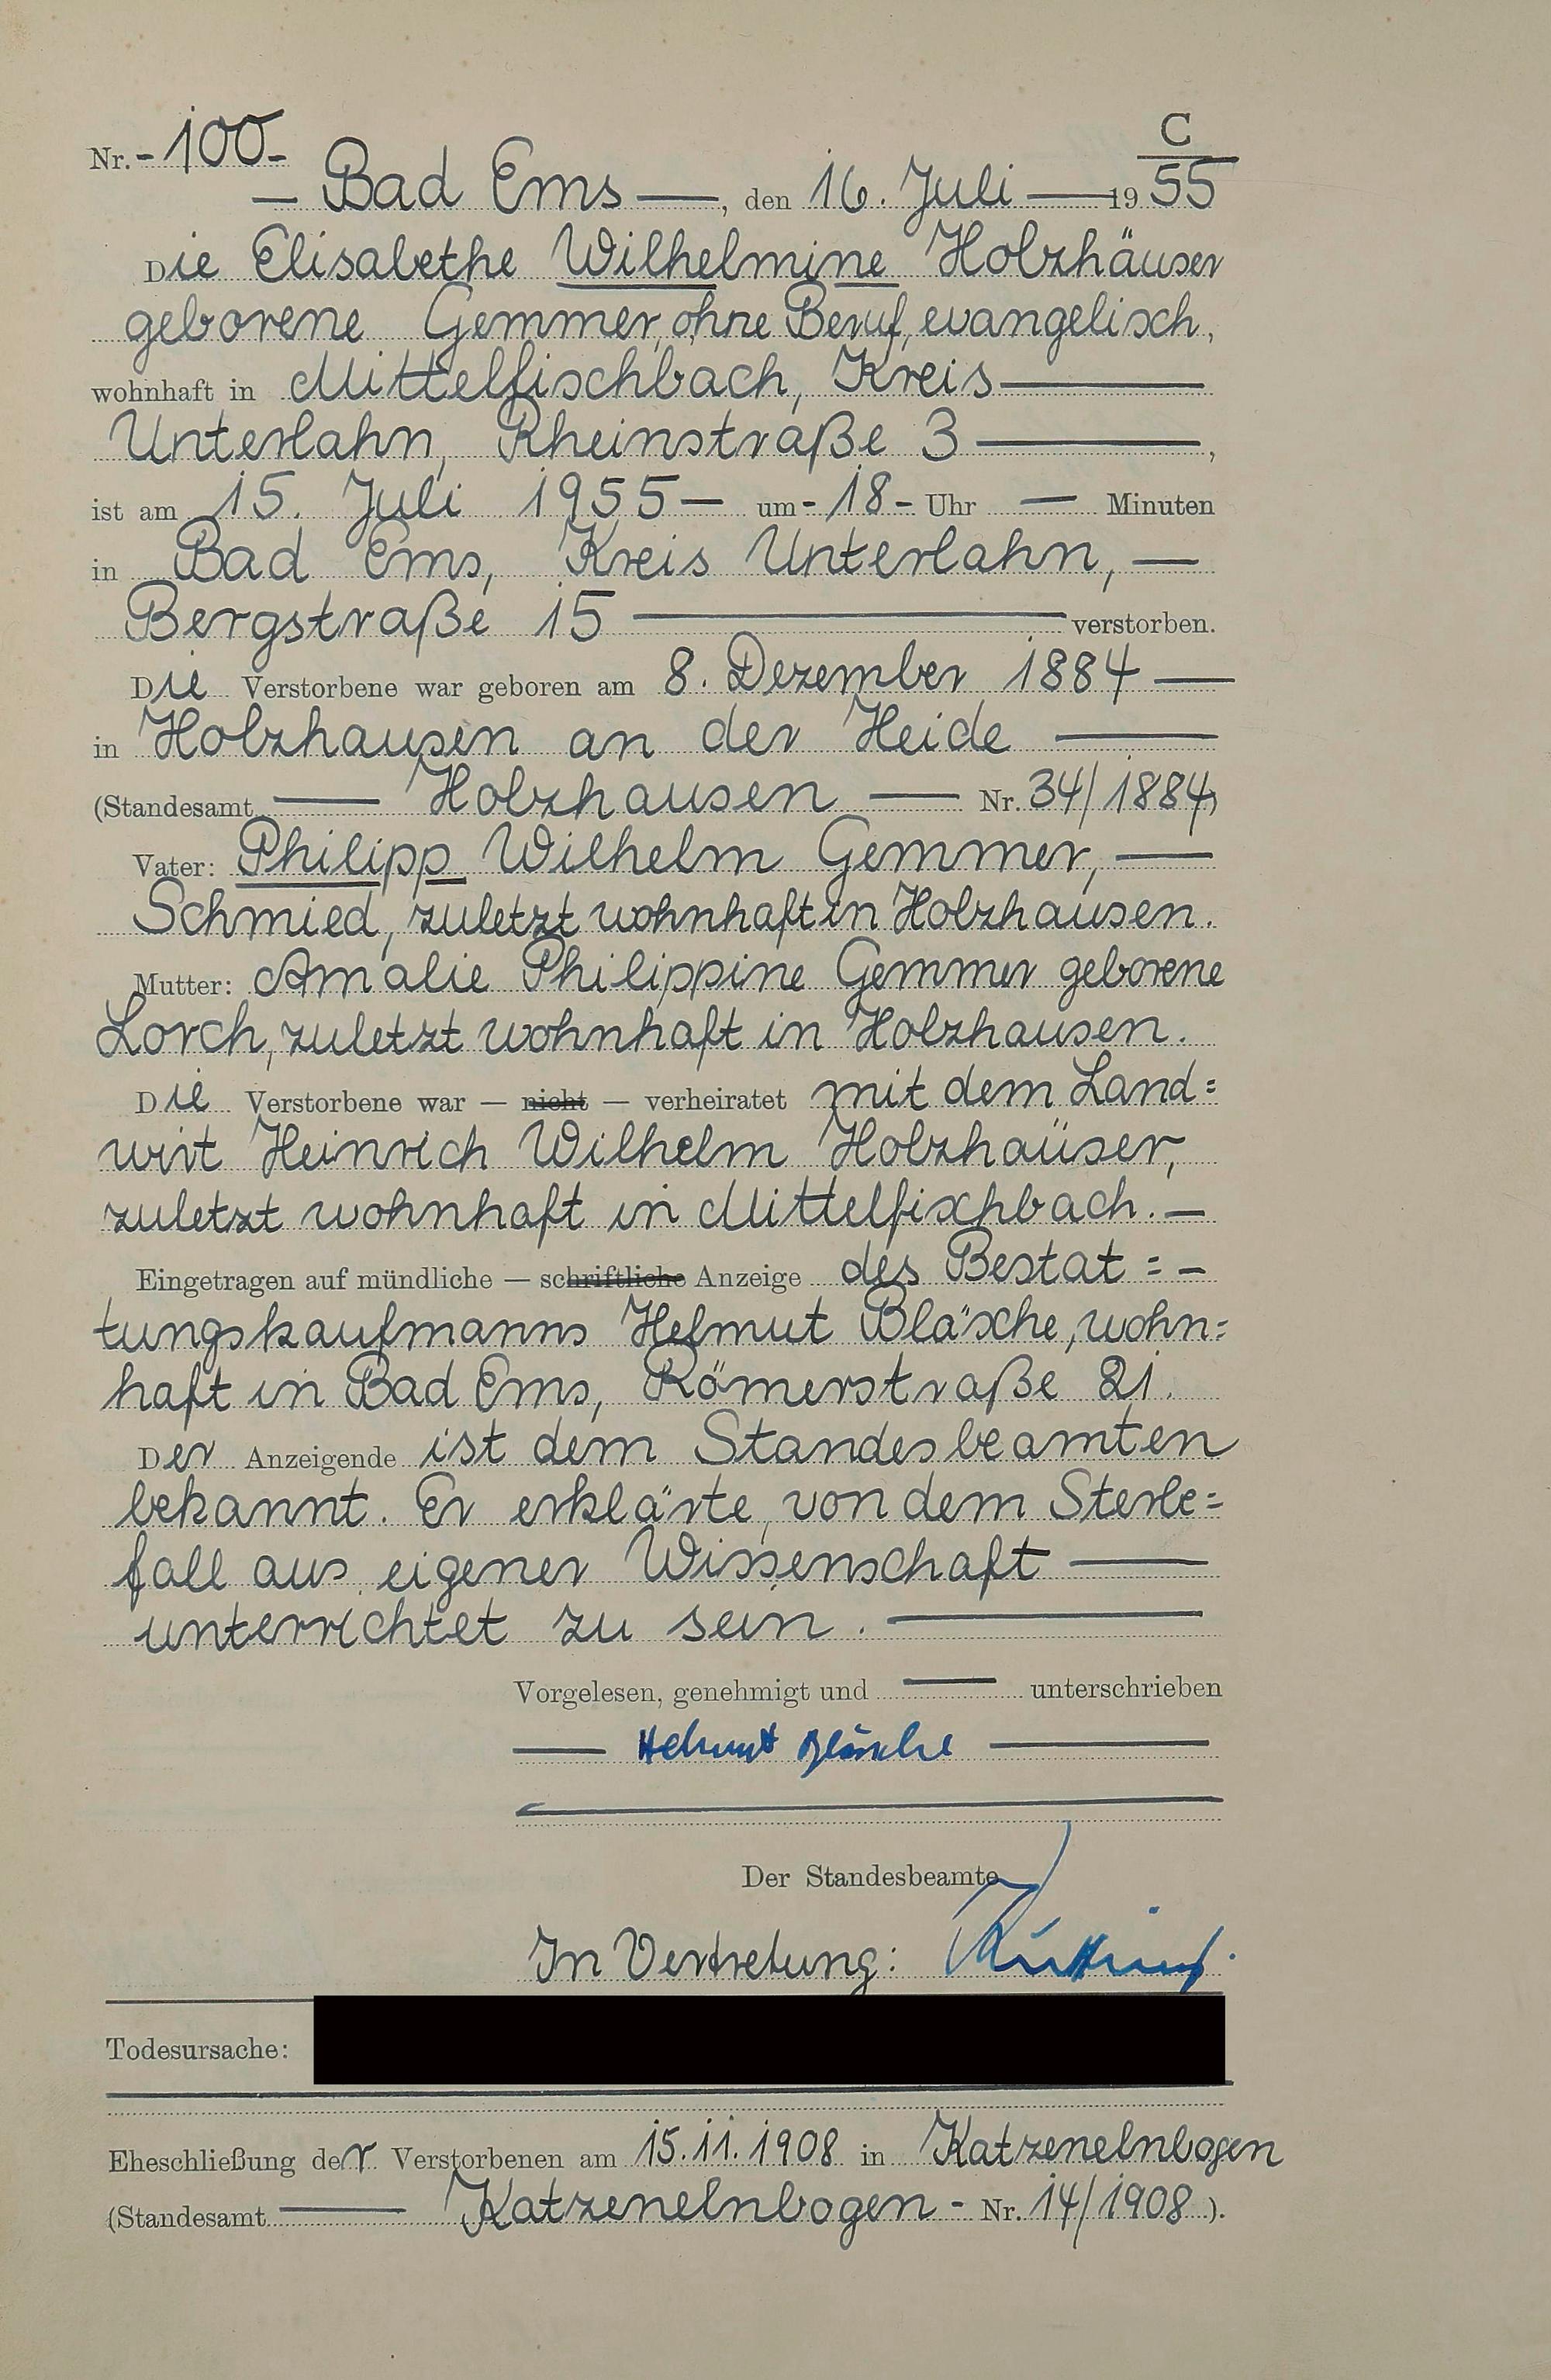 C
Nr. - 100 -
— Bad Ems —, den 16. Juli — 19 55
Die Elisabethe Wilhelmine Holzhäuser
geborene Gemmer, ohne Beruf, evangelisch,
wohnhaft in Mittelfischbach, Kreis —
Unterlahn, Rheinstraße 3 —,
ist am 15. Juli 1955 — um - 18 - Uhr — Minuten
in Bad Ems, Kreis Unterlahn, —
Bergstraße 15 — verstorben.
Die Verstorbene war geboren am 8. Dezember 1884 —
in Holzhausen an der Heide —
(Standesamt — Holzhausen — Nr. 34/1884)
Vater: Philipp Wilhelm Gemmer, —
Schmied, zuletzt wohnhaft in Holzhausen.
Mutter: Amalie Philippine Gemmer geborene
Lorch, zuletzt wohnhaft in Holzhausen.
Die Verstorbene war — nicht — verheiratet mit dem Land=
wirt Heinrich Wilhelm Holzhaüser,
zuletzt wohnhaft in Mittelfischbach. —
Eingetragen auf mündliche — schriftliche Anzeige des Bestat = -
tungskaufmanns Helmut Bläsche, wohn=
haft in Bad Ems, Römerstraße 21.
Der Anzeigende ist dem Standesbeamten
bekannt. Er erklärte, von dem Sterbe=
fall aus eigener Wissenschaft —
unterrichtet zu sein. —
Vorgelesen, genehmigt und — unterschrieben
— Helmut Bläsche —
Der Standesbeamte
In Vertretung:
Todesursache:
Eheschließung der Verstorbenen am 15.11.1908 in Katzenelnbogen
(Standesamt — Katzenelnbogen - Nr. 14/1908).